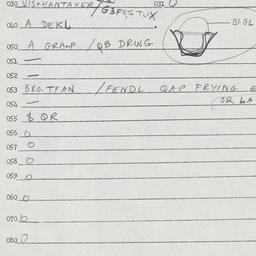 030 VISTHANTAXER / G3FESTUX 031 0
040 A DEKL
B3GL
050 A GRAMP / QB DRUG
051 —
052 —
053 BRO.TFAN / FENDL QAP FRYING
054 — (OR LA
055 $ QR
056 0
057 0
058 0
059 0
060 0
070 0
080 0